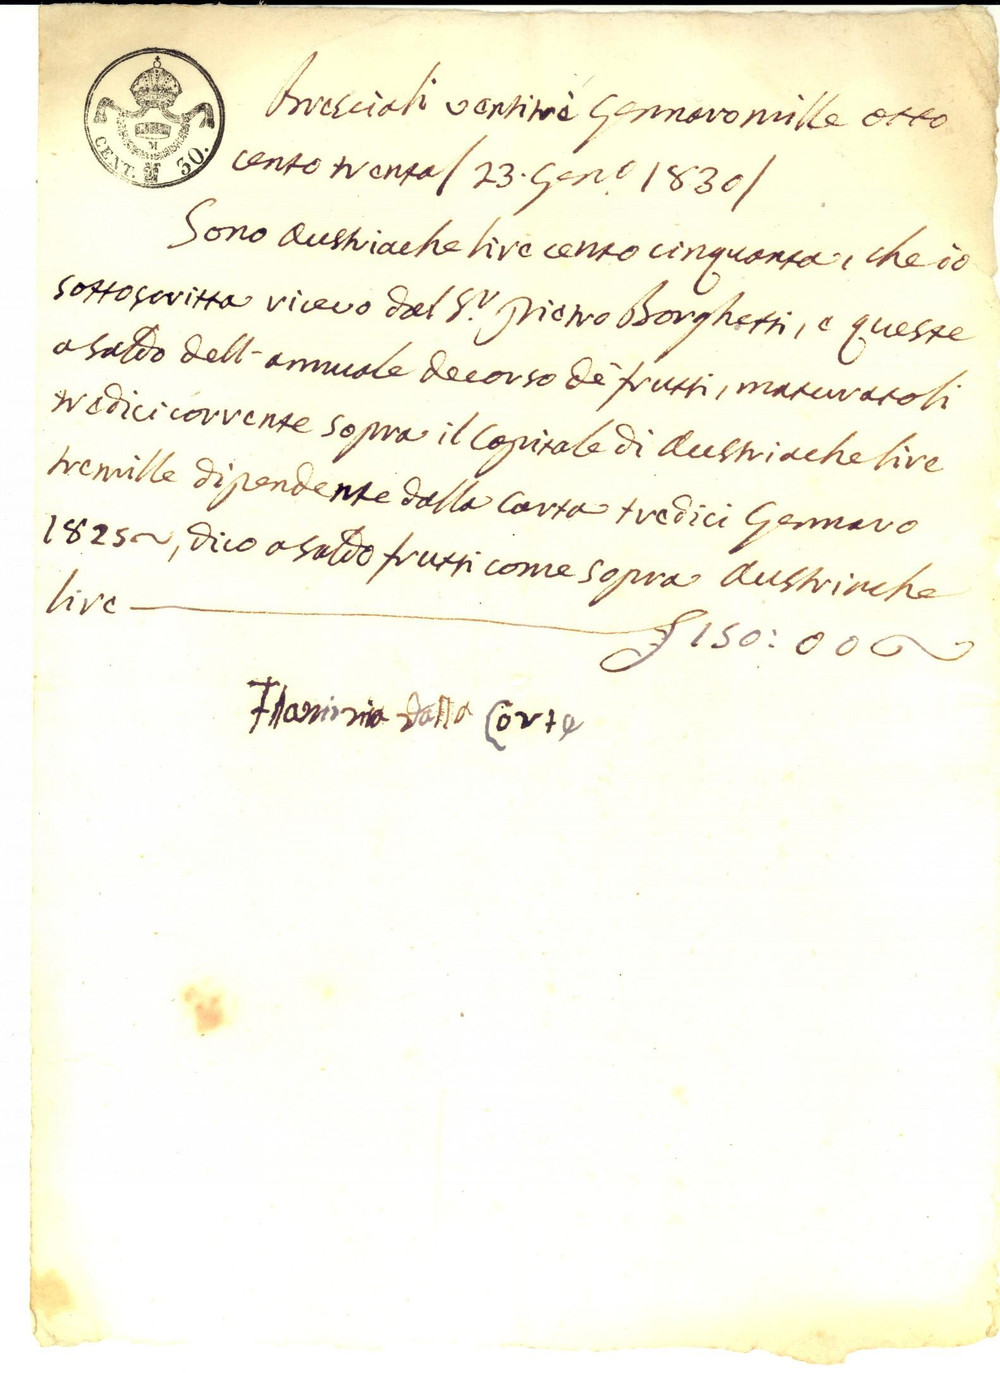 CENT. 30.
Brescia li ventitrè Gennaro mille otto
cento trenta / 23. Gen.o 1830 /
Sono Austriache lire cento cinquanta, che io
sottoscritta ricevo dal S.r Pietro Borghetti, e queste
a saldo dell'annuale decorso de' frutti, maturato li
tredici corrente sopra il Capitale di Austriache lire
tremille dipendente dalla Carta tredici Gennaro
1825, dico a saldo frutti come sopra Austriache
lire £ 150: 00
Flaminia dalla Corte